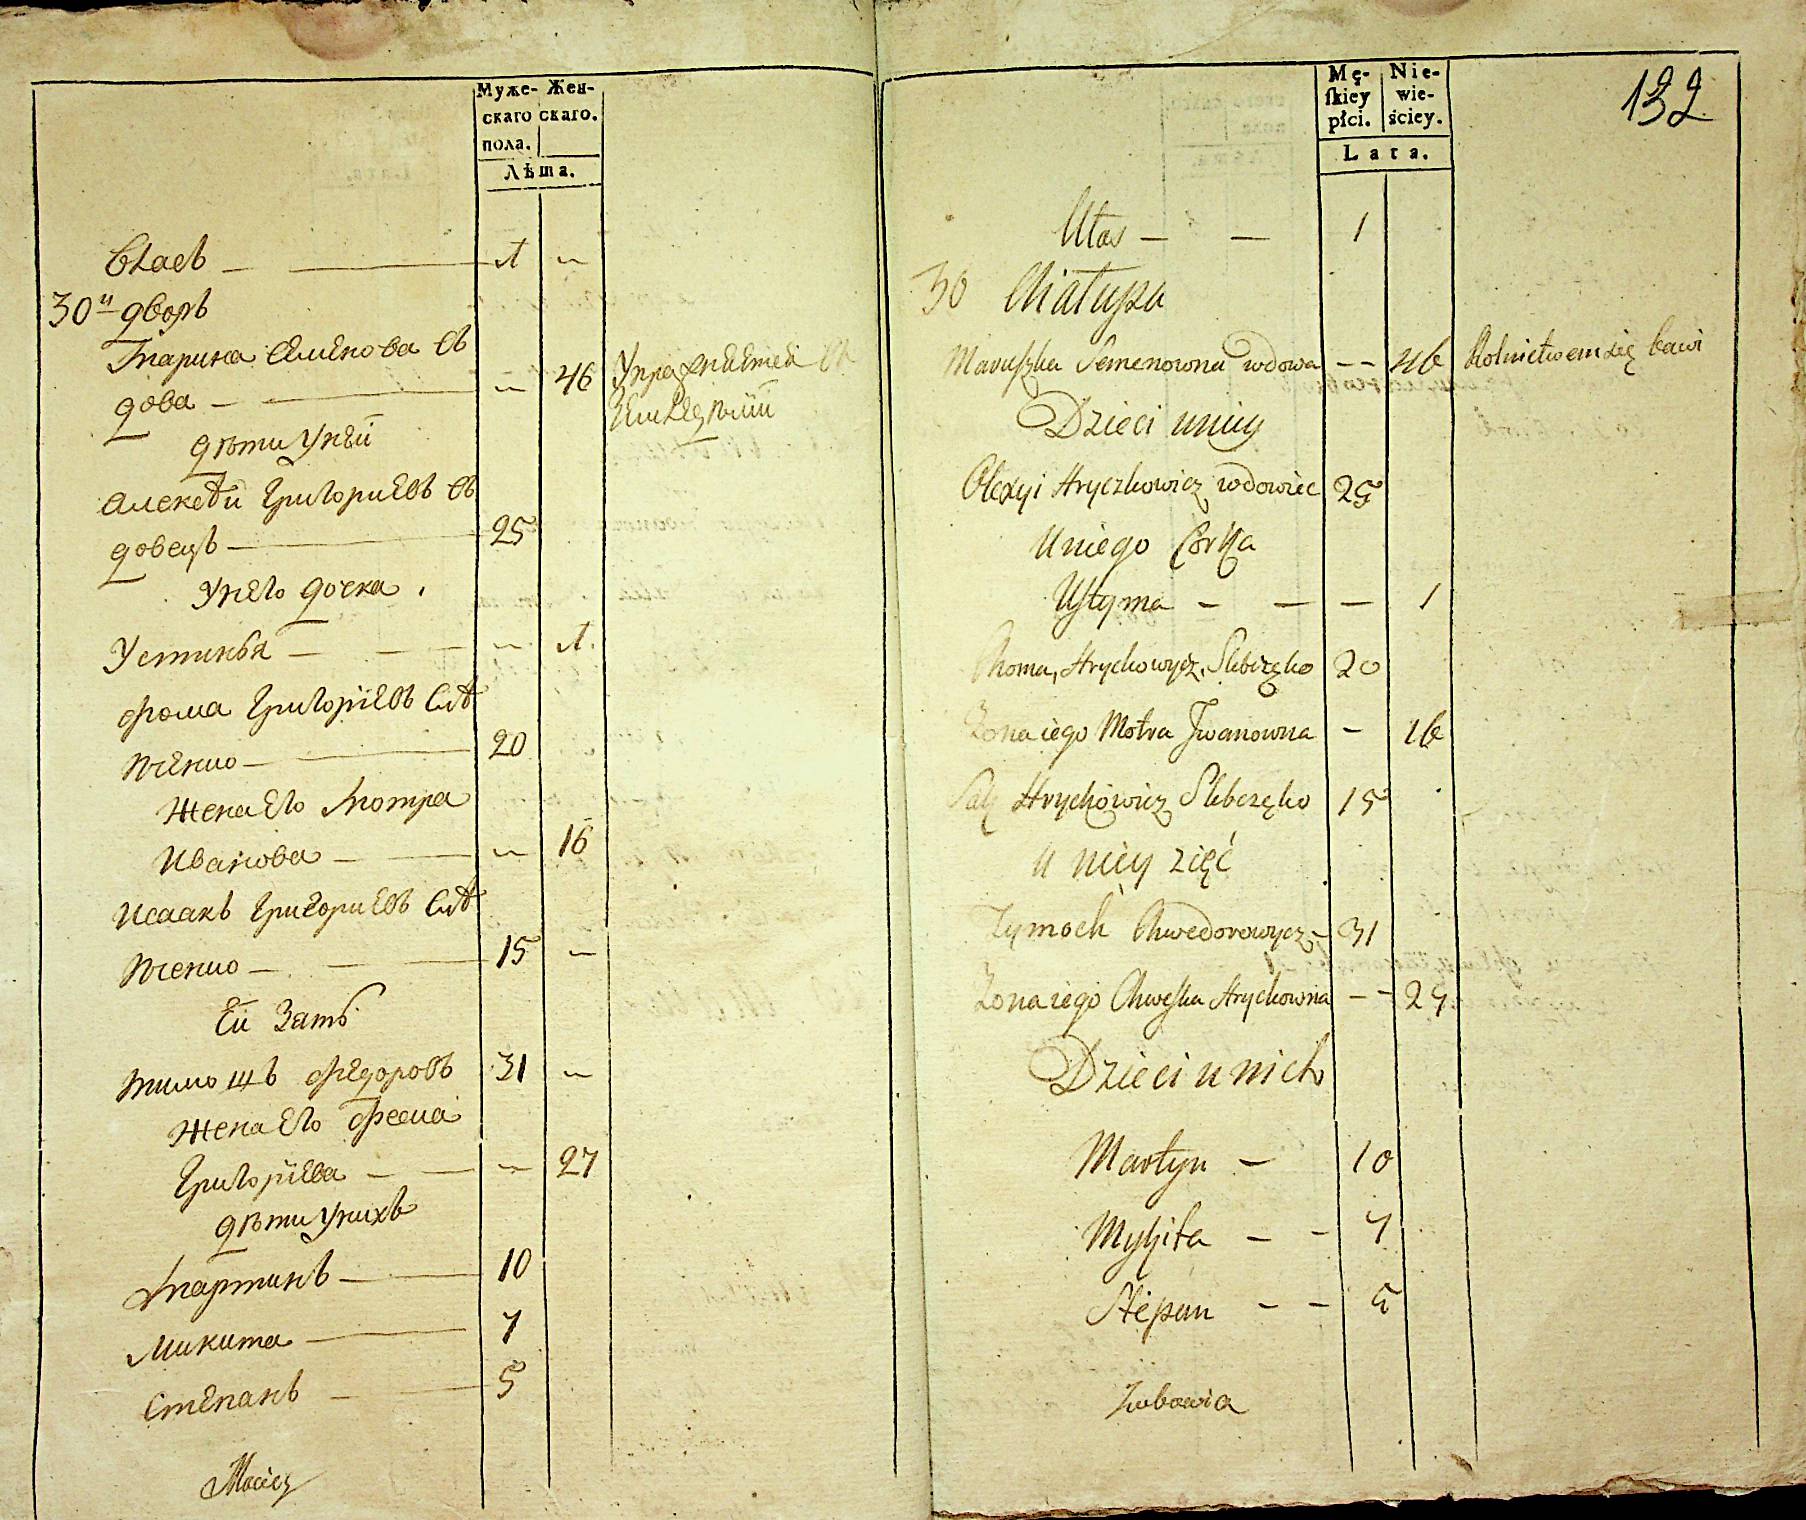 Муже- Жен-
скаго скаго.
пола.
Лѣта.
Власъ — — 1 —
30й дворъ
Марина Семенова въ
дова — — 46 Упражняется въ
земледѣлїи
дѣти у нея
Алексѣй Григориевъ въ
довецъ — 25
у него дочка
Устинья — — — — 1
Фома Григорїевъ Слѣ
пченко — 20
Жена его Мотра
Иванова — — 16
Исаакъ Григориевъ Слѣ
пченко — — 15 —
Ей Зять
Тимошъ Федоровъ 31 —
Жена его Феспа
Григорїева — — — 27
дѣти у нихъ
Мартинъ — 10
Микита — 7
Степанъ — 5
Maciey
132
Mę- Nie-
ſkiey wie-
płci. ściey.
Lata.
Ułas — — 1
30 Chałupa
Maruſzka Semenowna wdowa — — 46 Rolnictwem się bawi
Dzieci u niey
Olexyi Hryczkowicz wdowiec 25
U niego Córka
Uſtyma — — — 1
Choma Hrychowycz Slebczęko 20
Zona iego Motra Jwanowna — 16
Sak Hrychowicz Slebczęko 15
U niey zięć
Tymoch Chwedorowycz — 31
Zona iego Chweſka Hrychowna — — 27
Dzieci u nich
Martyn — 10
Mykita — — 7
Stepan — — 5
Zubowia